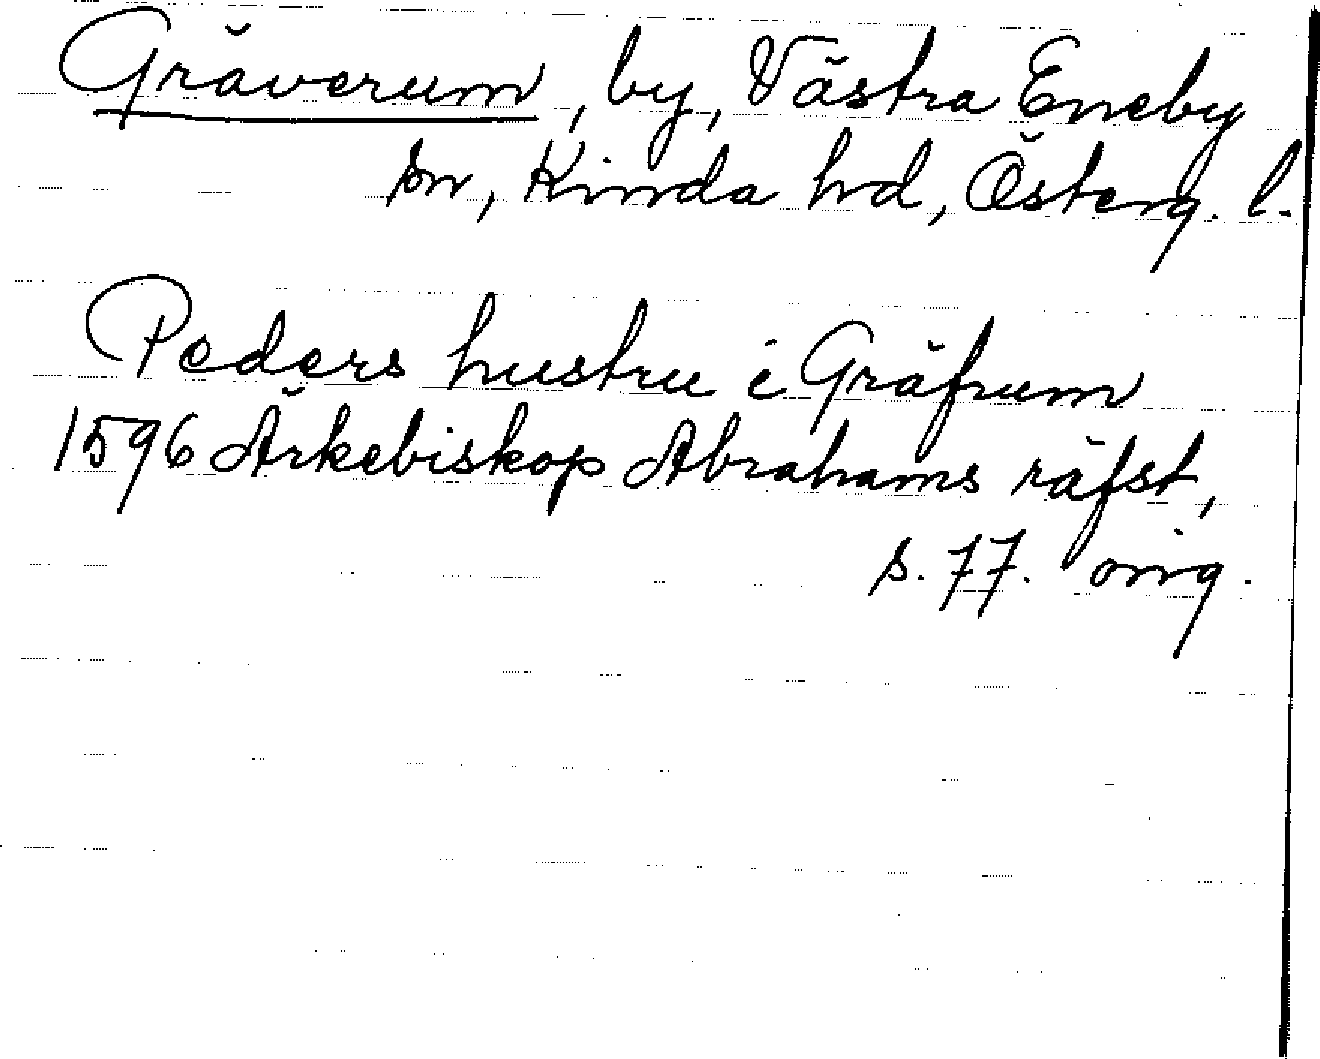 Gräverum, by, Västra Eneby
sn, Kinda hd, Österg. l.
Peders hustru i Gräfrum
1596 Ärkebiskop Abrahams räfst,
s. 77. orig.